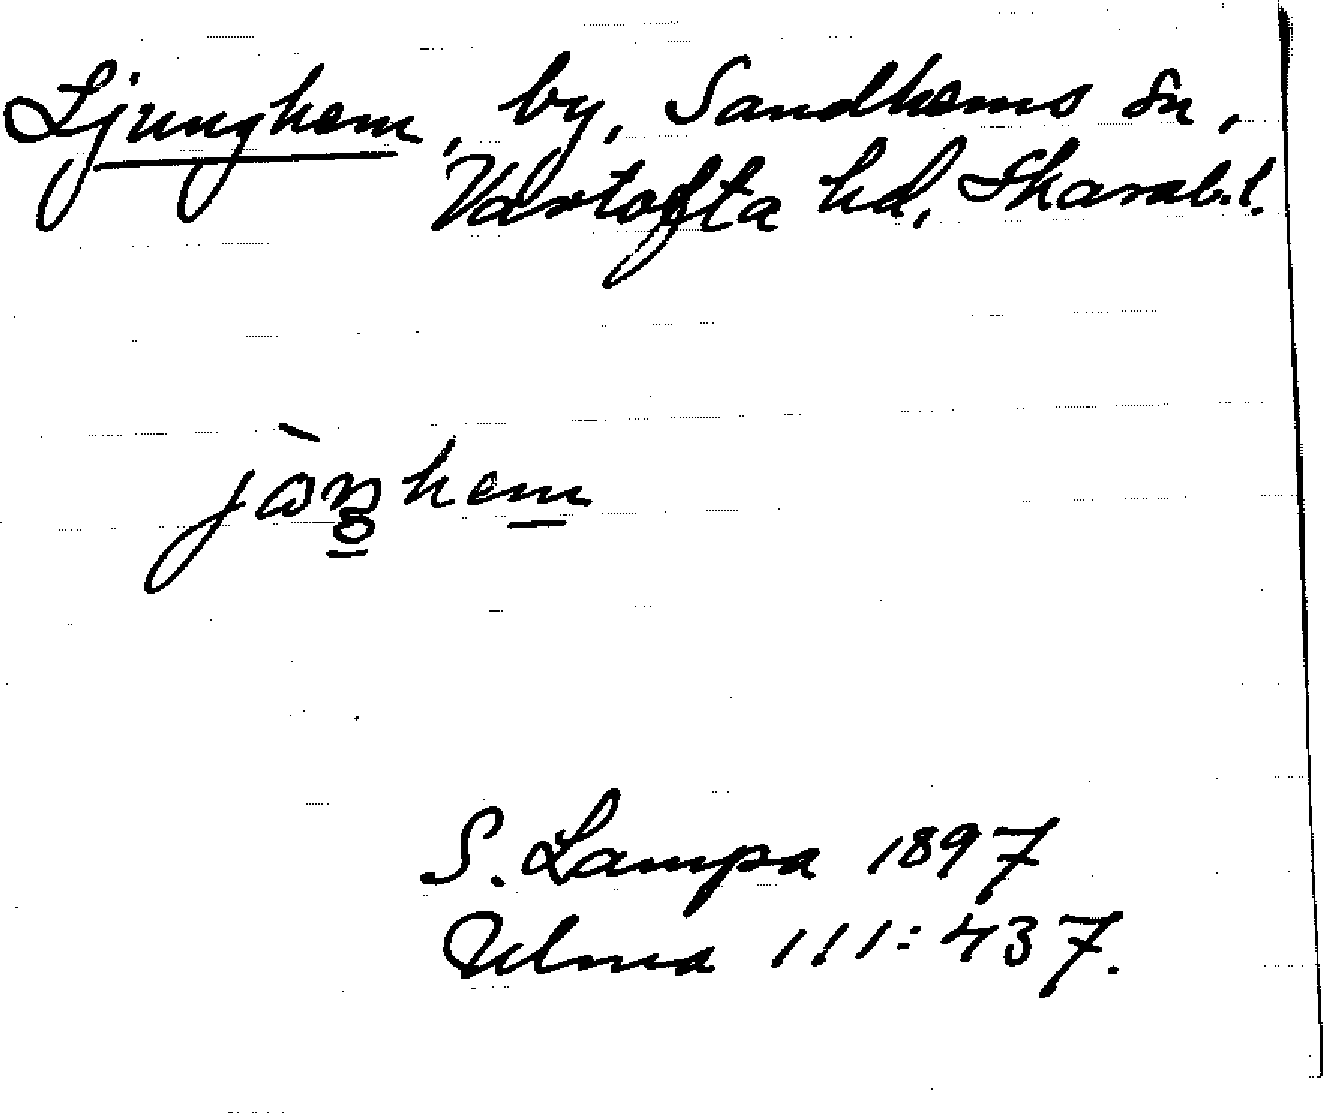 Ljunghem, by, Sandhems sn,
Vartofta hd, Skarab.l.
S. Lampa 1897
Ulma 111:437.